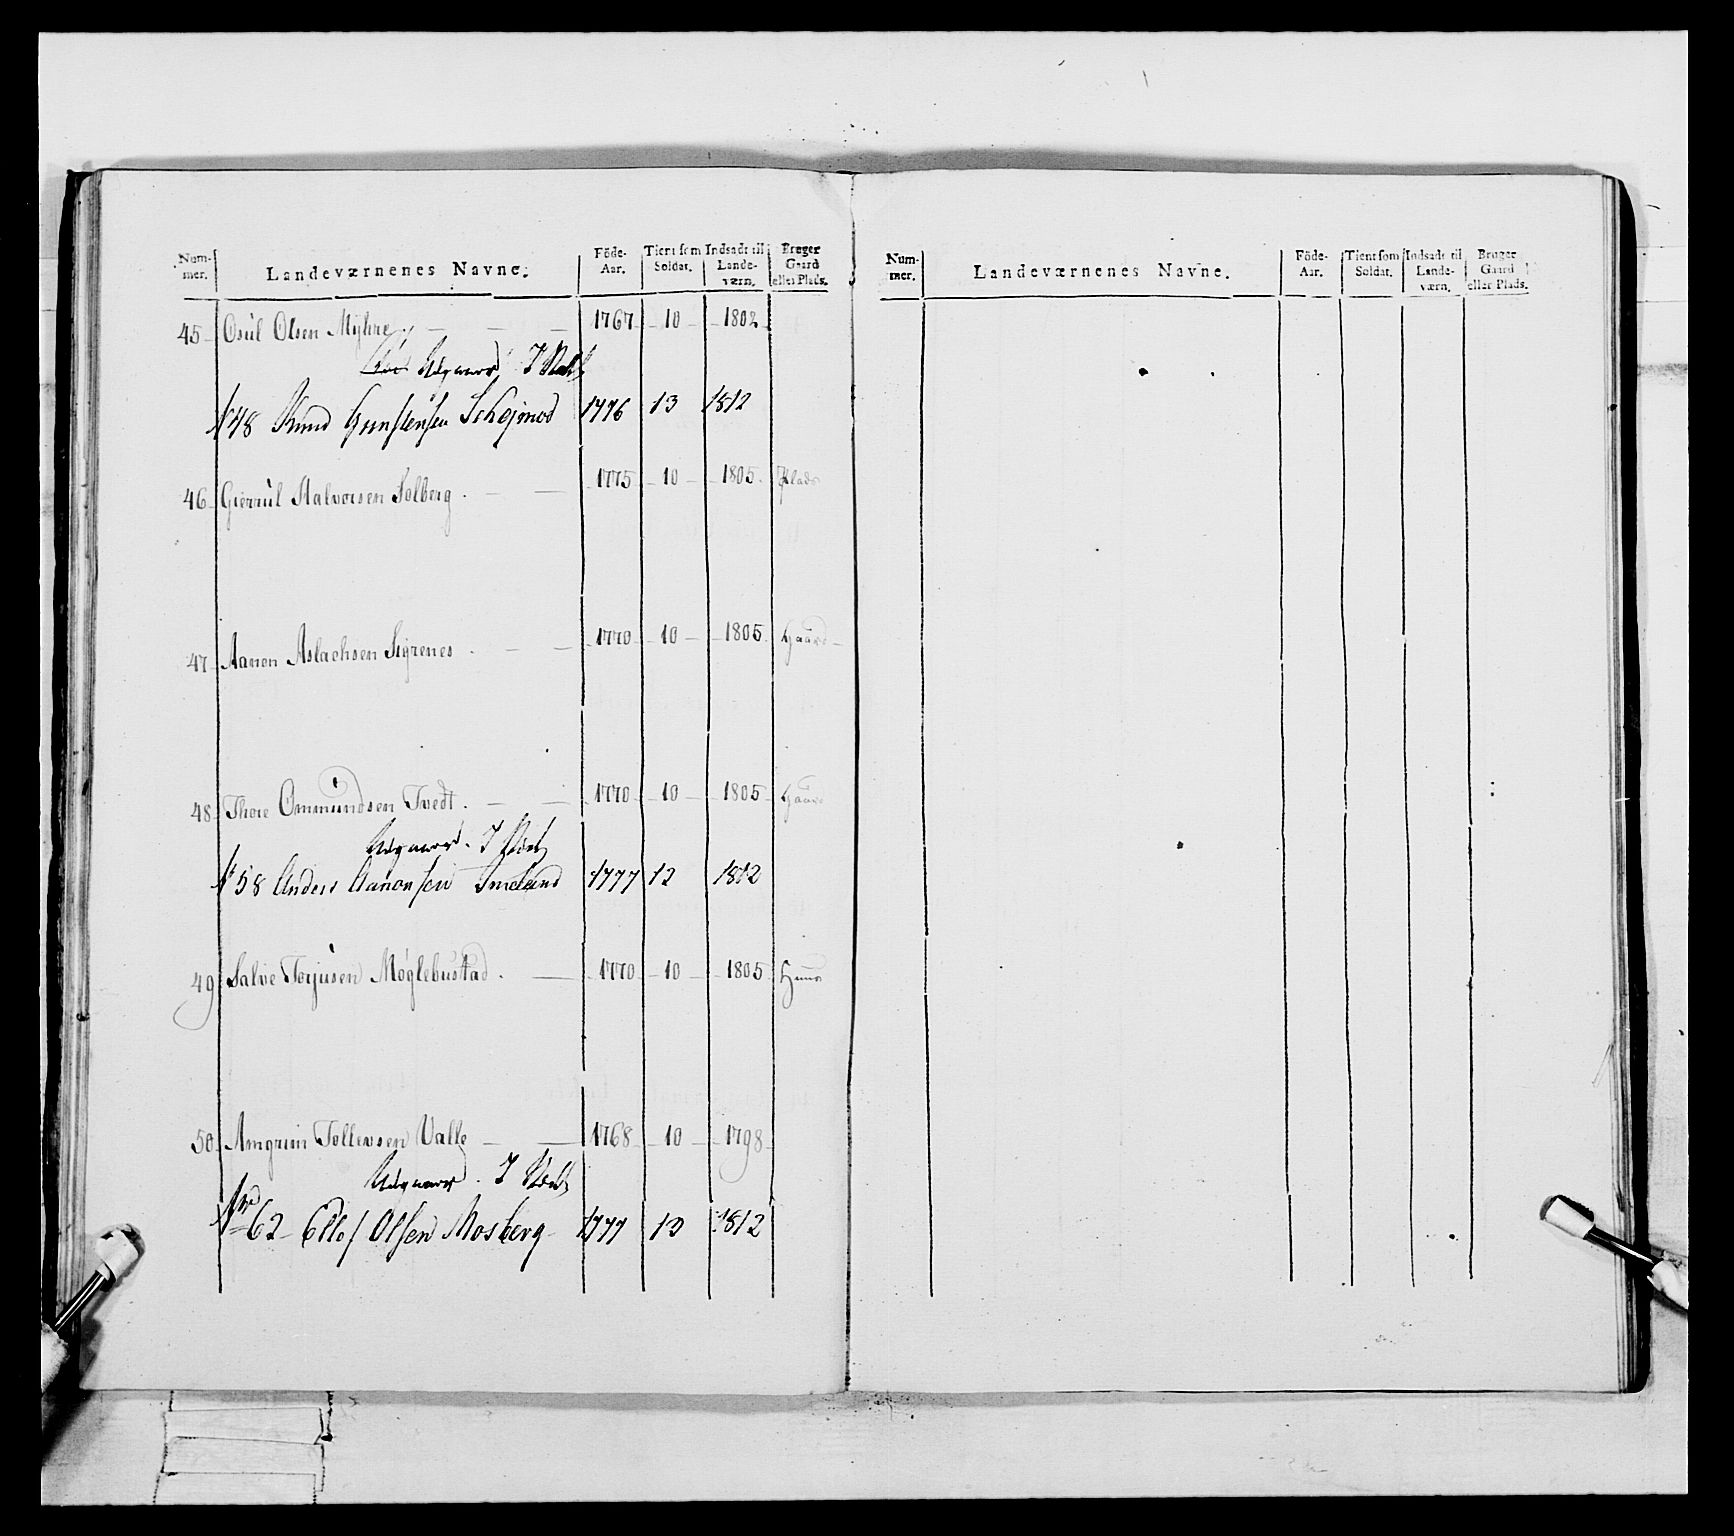 Num-
mer.
Landeværnenes Navne.
Föde-
Aar.
Tient som
Soldat.
Indsadt til
Lande-
værn.
Bruger
Gaard
eller Plads.
45 Osul Olsen Myhre. — — — 1767 10 1802
Udgaaed I Stæd
N 48 Knud Gunstensen Schejmod 1776 13 1812
46 Gierrul Halvorsen Solberg. — — 1775 10 1805 Plads
47 Aanen Aslachsen Sigrenes. — — 1770 10 1805 Gaard
48 Thore Ommundsen Tvedt. — — 1770 10 1805 Gaard
I
N 58 Anders Aanonsen Smeland 1777 12 1812
49 Salve Torjusen Møglebustad. — 1770 10 1805
50 Arngrim Tollevsen Valle — — 1768 10 1798
I
Nr 62 Ellef Olsen Mosberg 1777 13 1812
Num-
mer.
Landeværnenes Navne.
Föde-
Aar.
Tient som
Soldat.
Indsadt til
Lande-
værn.
Bruger
Gaard
eller Plads.